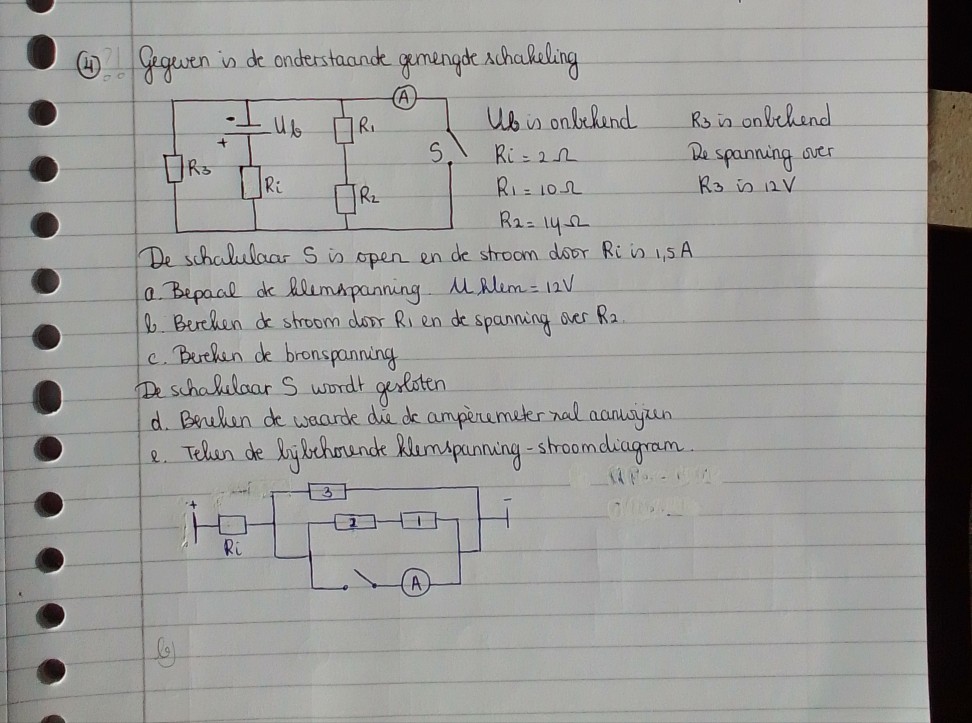 4 ?! Gegeven is de onderstaande gemengde schakeling
A
- Ub R1
+
S
R3 Ri R2
Ub is onbekend
Ri = 2 Ω
R1 = 10 Ω
R2 = 14 Ω
R3 is onbekend
De spanning over
R3 is 12V
De schakelaar S is open en de stroom door Ri is 1,5 A
a. Bepaal de klemspanning U klem = 12V
b. Bereken de stroom door R1 en de spanning over R2.
c. Bereken de bronspanning
De schakelaar S wordt gesloten
d. Bereken de waarde die de ampèremeter zal aanwijzen
e. Teken de bijbehorende klemspanning - stroomdiagram.
3
+ 2 1 -
Ri
A